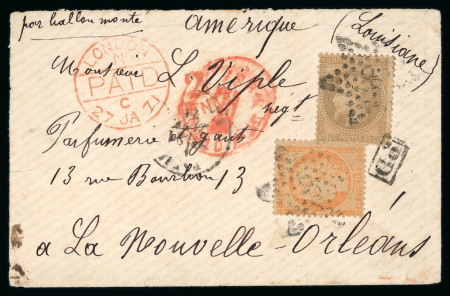 par ballon monté
Amérique (Louisiane)
LONDON
PAID
C
27 JA 71
Monsieur L. Viple
negt
Parfumerie et gants
13 rue Bourbon 13
PD
à La Nouvelle-Orléans